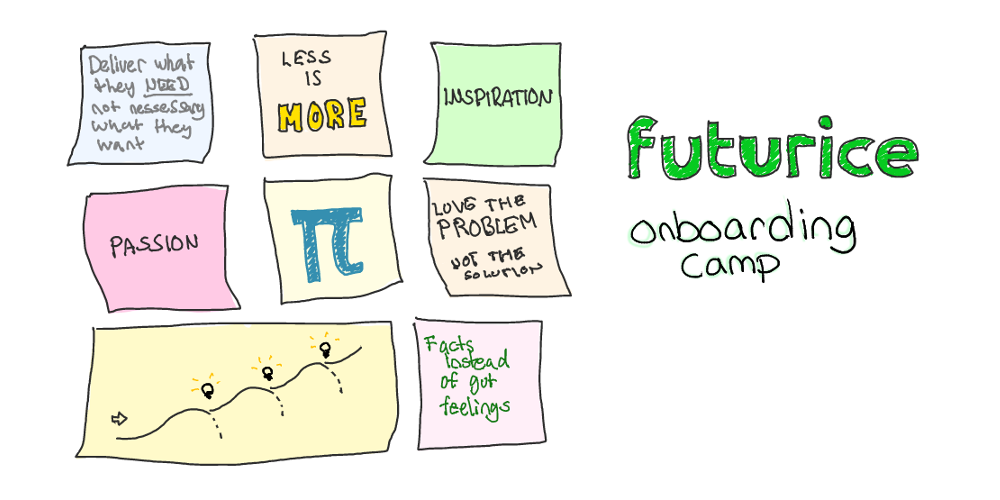 Deliver what
they NEED
not nessessary
what they
want
LESS
IS
MORE
INSPIRATION
PASSION
π
LOVE THE
PROBLEM
NOT THE
SOLUTION
Facts
instead
of gut
feelings
futurice
onboarding
camp